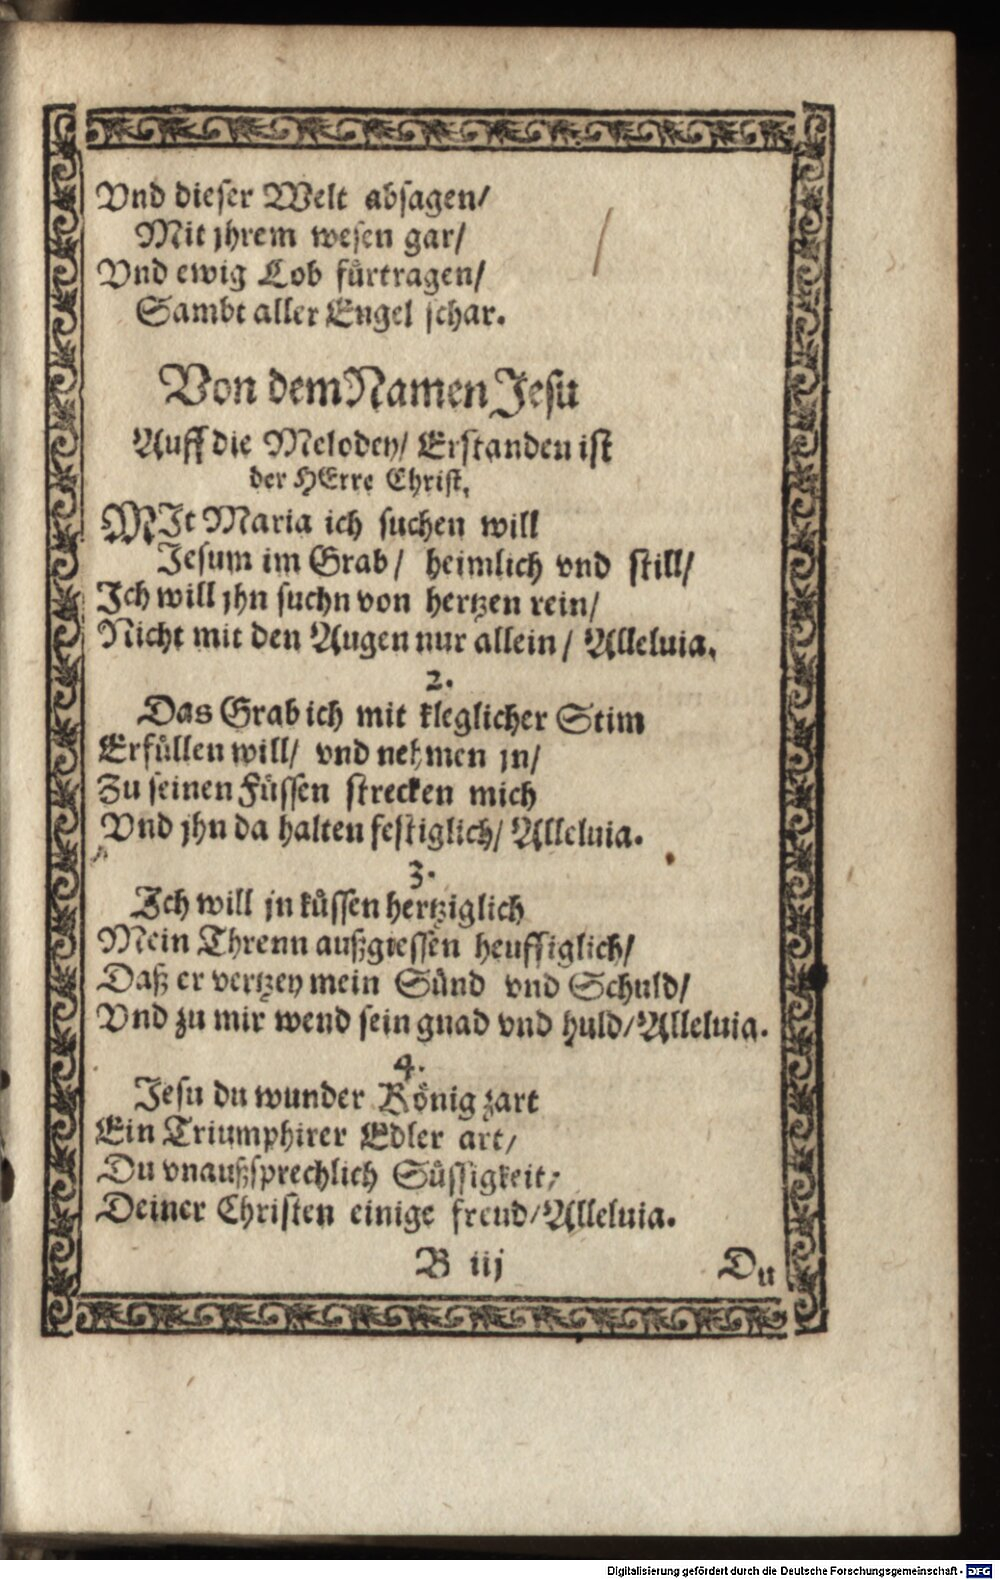 Vnd dieser Welt absagen/
Mit jhrem wesen gar/
Vnd ewig Lob fürtragen/
Sambt aller Engel schar.
Von dem Namen Jesu
Auff die Melodey/ Erstanden ist
der HErre Christ.
MIt Maria ich suchen will
Jesum im Grab/ heimlich vnd still/
Ich will jhn suchn von hertzen rein/
Nicht mit den Augen nur allein/ Alleluia.
2.
Das Grab ich mit kleglicher Stim
Erfüllen will/ vnd nehmen jn/
Zu seinen Füssen strecken mich
Vnd jhn da halten festiglich/ Alleluia.
3.
Ich will jn küssen hertziglich
Mein Threnn außgiessen heuffiglich/
Daß er vertzey mein Sünd vnd Schuld/
Vnd zu mir wend sein gnad vnd huld/ Alleluia.
4.
Jesu du wunder König zart
Ein Triumphirer Edler art/
Du vnaußsprechlich Süssigkeit/
Deiner Christen einige freud/ Alleluia.
B iij
Du
Digitalisierung gefördert durch die Deutsche Forschungsgemeinschaft - DFG